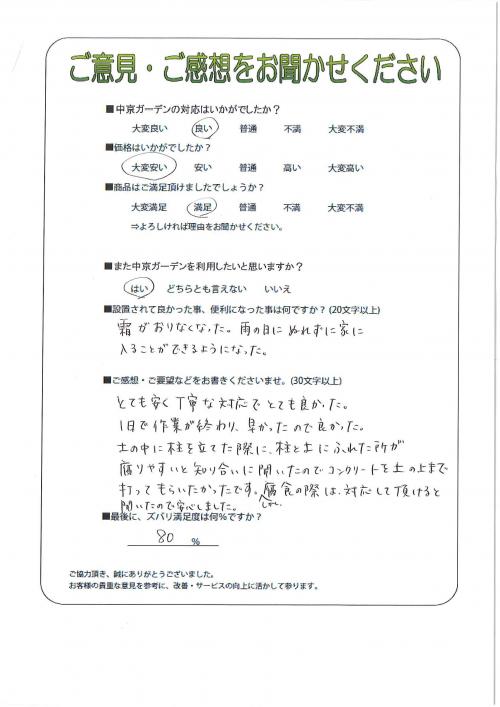 ご意見・ご感想をお聞かせください
■中京ガーデンの対応はいかがでしたか？
大変良い 良い 普通 不満 大変不満
■価格はいかがでしたか？
大変安い 安い 普通 高い 大変高い
■商品はご満足頂けましたでしょうか？
大変満足 満足 普通 不満 大変不満
⇒よろしければ理由をお聞かせください。
■また中京ガーデンを利用したいと思いますか？
はい どちらとも言えない いいえ
■設置されて良かった事、便利になった事は何ですか？(20文字以上)
霜がおりなくなった。雨の日にぬれずに家に
入ることができるようになった。
■ご感想・ご要望などをお書きくださいませ。(30文字以上)
とても安く丁寧な対応でとても良かった。
1日で作業が終わり、早かったので良かった。
土の中に柱を立てた際に、柱と土にふれた所が
腐りやすいと知り合いに聞いたのでコンクリートを土の上まで
打ってもらいたかったです。腐食の際は、対応して頂けると
聞いたので安心しました。
■最後に、ズバリ満足度は何％ですか？
80 %
ご協力頂き、誠にありがとうございました。
お客様の貴重な意見を参考に、改善・サービスの向上に活かして参ります。